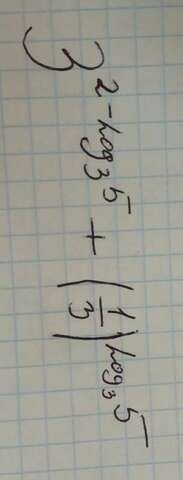 3^{2-log_3 5} + (\frac{1}{3})^{log_3 5}